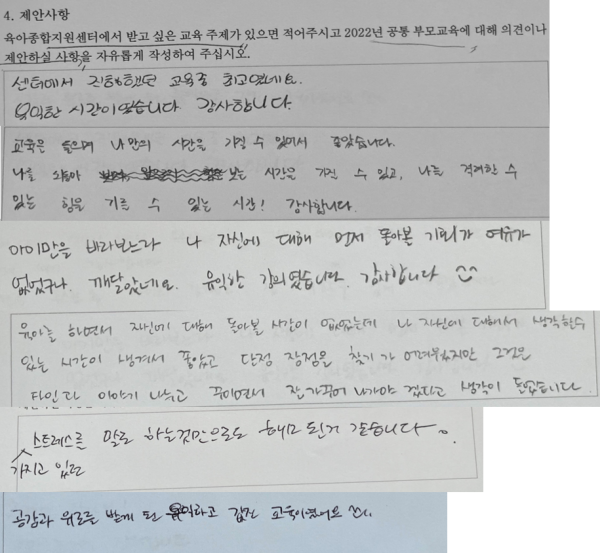 4. 제안사항
육아종합지원센터에서 받고 싶은 교육 주제가 있으면 적어주시고 2022년 공통 부모교육에 대해 의견이나
제안하실 사항을 자유롭게 작성하여 주십시오.
센터에서 진행했던 교육중 최고였네요.
유익한 시간이었습니다 감사합니다.
교육은 들으며 나만의 시간을 가질 수 있어서 좋았습니다.
나를 보는 시간을 가질 수 있고, 나를 격려한 수
있는 힘을 기를 수 있는 시간! 감사합니다.
아이만을 바라보느라 나 자신에 대해 먼저 돌아본 기회가 여유가
없었구나. 깨달았네요. 유익한 강의였습니다. 감사합니다 ^^
육아를 하면서 자신에 대해 돌아볼 시간이 없었는데 나 자신에 대해서 생각한수
있는 시간이 생겨서 좋았고 단점 장점을 찾기가 어려웠지만 그것은
타인과 이야기 나누고 꾸미면서 잘 가꾸어 나가야 겠다고 생각이 들었습니다.
스트레스를 말로 하는것만으로도 해소 된거 같습니다.
가지고 있던
공감과 위로를 받게 된 유익하고 값진 교육이였어요 ^^.